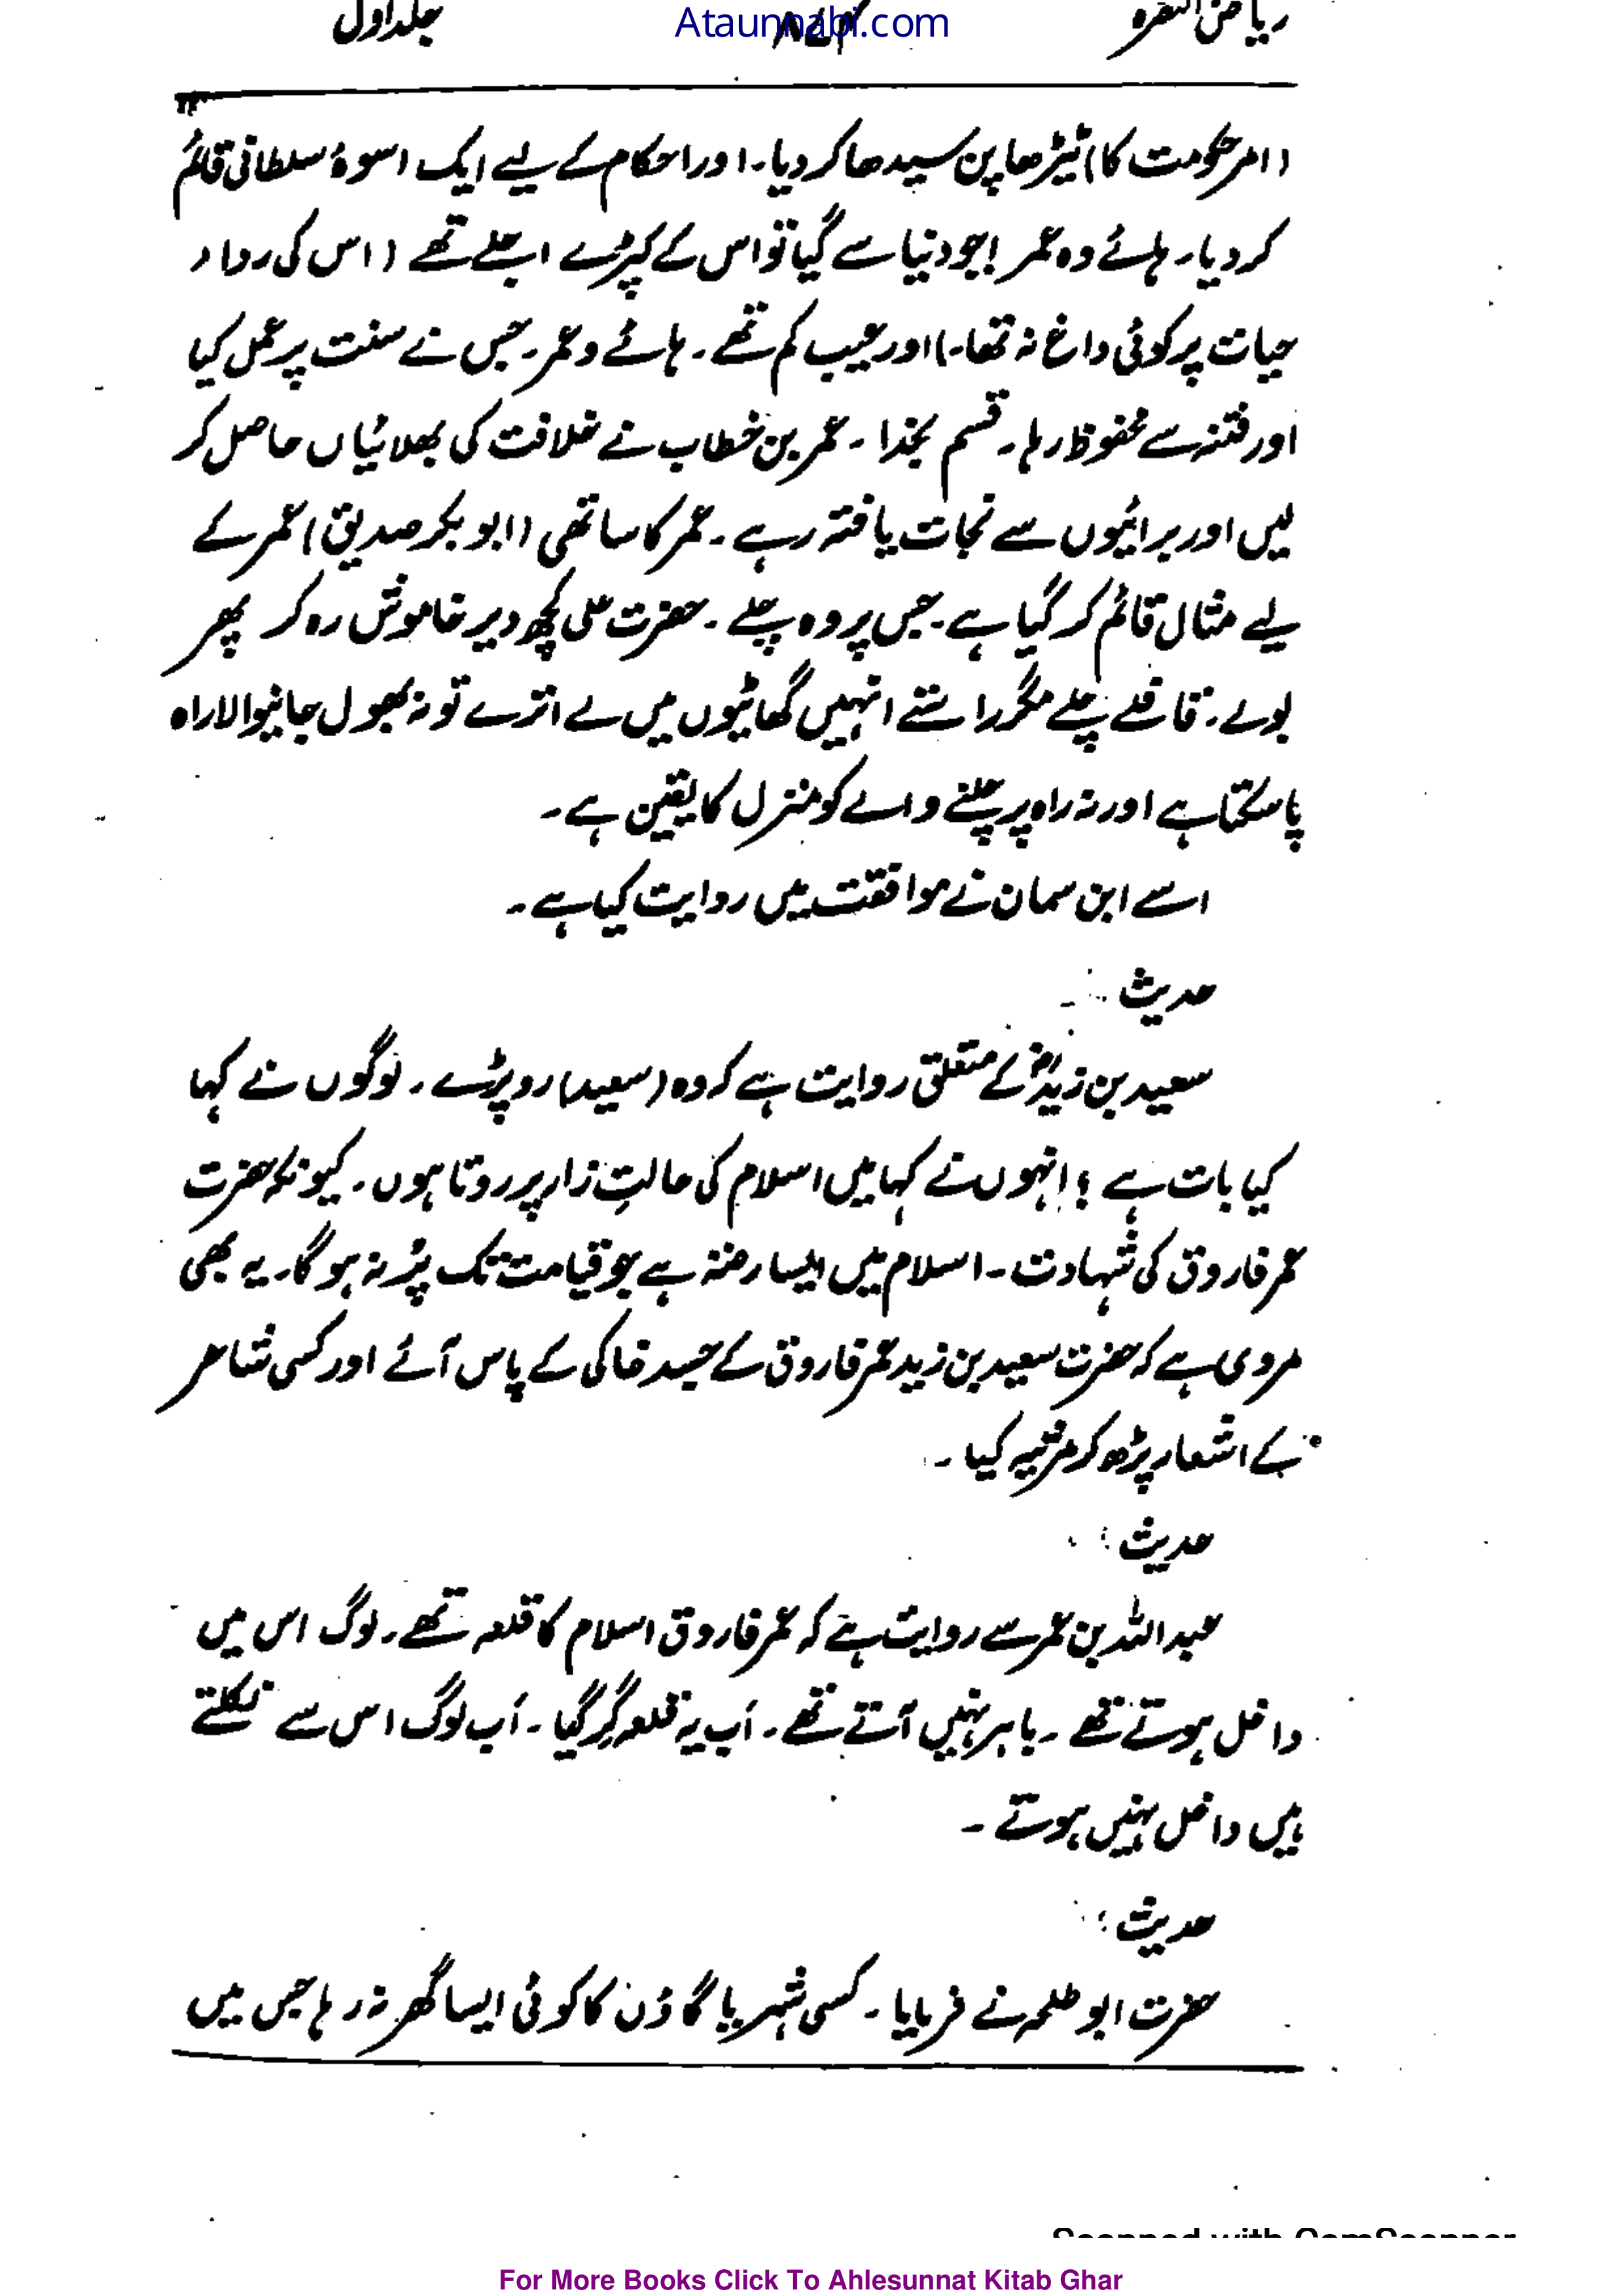 ریاض النضرہ Ataunnabi.com جلد اول
(امر حکومت کا) ٹیڑھا پن سیدھا کر دیا۔ اور احکام کے لیے ایک اسوۂ سلطانی قائم
کر دیا۔ ہائے وہ عمر! جو دنیا سے گیا تو اس کے کپڑے اجلے تھے (اس کی رداء
حیات پر کوئی داغ نہ تھا۔) اور عیب کم تھے۔ ہائے و عمر۔ جس نے سنت پر عمل کیا
اور فتنہ سے محفوظ رہا۔ قسم بخدا۔ عمر بن خطاب نے خلافت کی بھلائیاں حاصل کر
لیں اور برائیوں سے نجات یافتہ رہے۔ عمر کا ساتھی (ابوبکر صدیق) عمر کے
لیے مثال قائم کر گیا ہے۔ جس پر وہ چلے۔ حضرت علی کچھ دیر خاموش رہ کر پھر
بولے۔ قافلے چلے مگر راستے انہیں گھاٹیوں میں لے اترے تو نہ بھول جانیوالا راہ
پا سکتا ہے اور نہ راہ پر چلنے والے کو منزل کا یقین ہے۔
اسے ابن سمان نے موافقت میں روایت کیا ہے۔
حدیث
سعید بن زیدؓ کے متعلق روایت ہے کہ وہ (سعید) رو پڑے۔ لوگوں نے کہا
کیا بات ہے؟ انہوں نے کہا میں اسلام کی حالتِ زار پر روتا ہوں۔ کیونکہ حضرت
عمر فاروق کی شہادت۔ اسلام میں ایسا رخنہ ہے جو قیامت تک پُر نہ ہو گا۔ یہ بھی
مروی ہے کہ حضرت سعید بن زید عمر فاروق کے جسد خاکی کے پاس آئے اور کسی شاعر
کے اشعار پڑھ کر مرثیہ کیا۔
حدیث :
عبداللہ بن عمر سے روایت ہے کہ عمر فاروق اسلام کا قلعہ تھے۔ لوگ اس میں
داخل ہوتے تھے۔ باہر نہیں آتے تھے۔ اَب یہ قلعہ گِر گیا۔ اَب لوگ اس سے نکلتے
ہیں داخل نہیں ہوتے۔
حدیث :
حضرت ابو طلحہ نے فرمایا۔ کسی شہر یا گاؤں کا کوئی ایسا گھر نہ رہا جس میں
Scanned with CamScanner
For More Books Click To Ahlesunnat Kitab Ghar